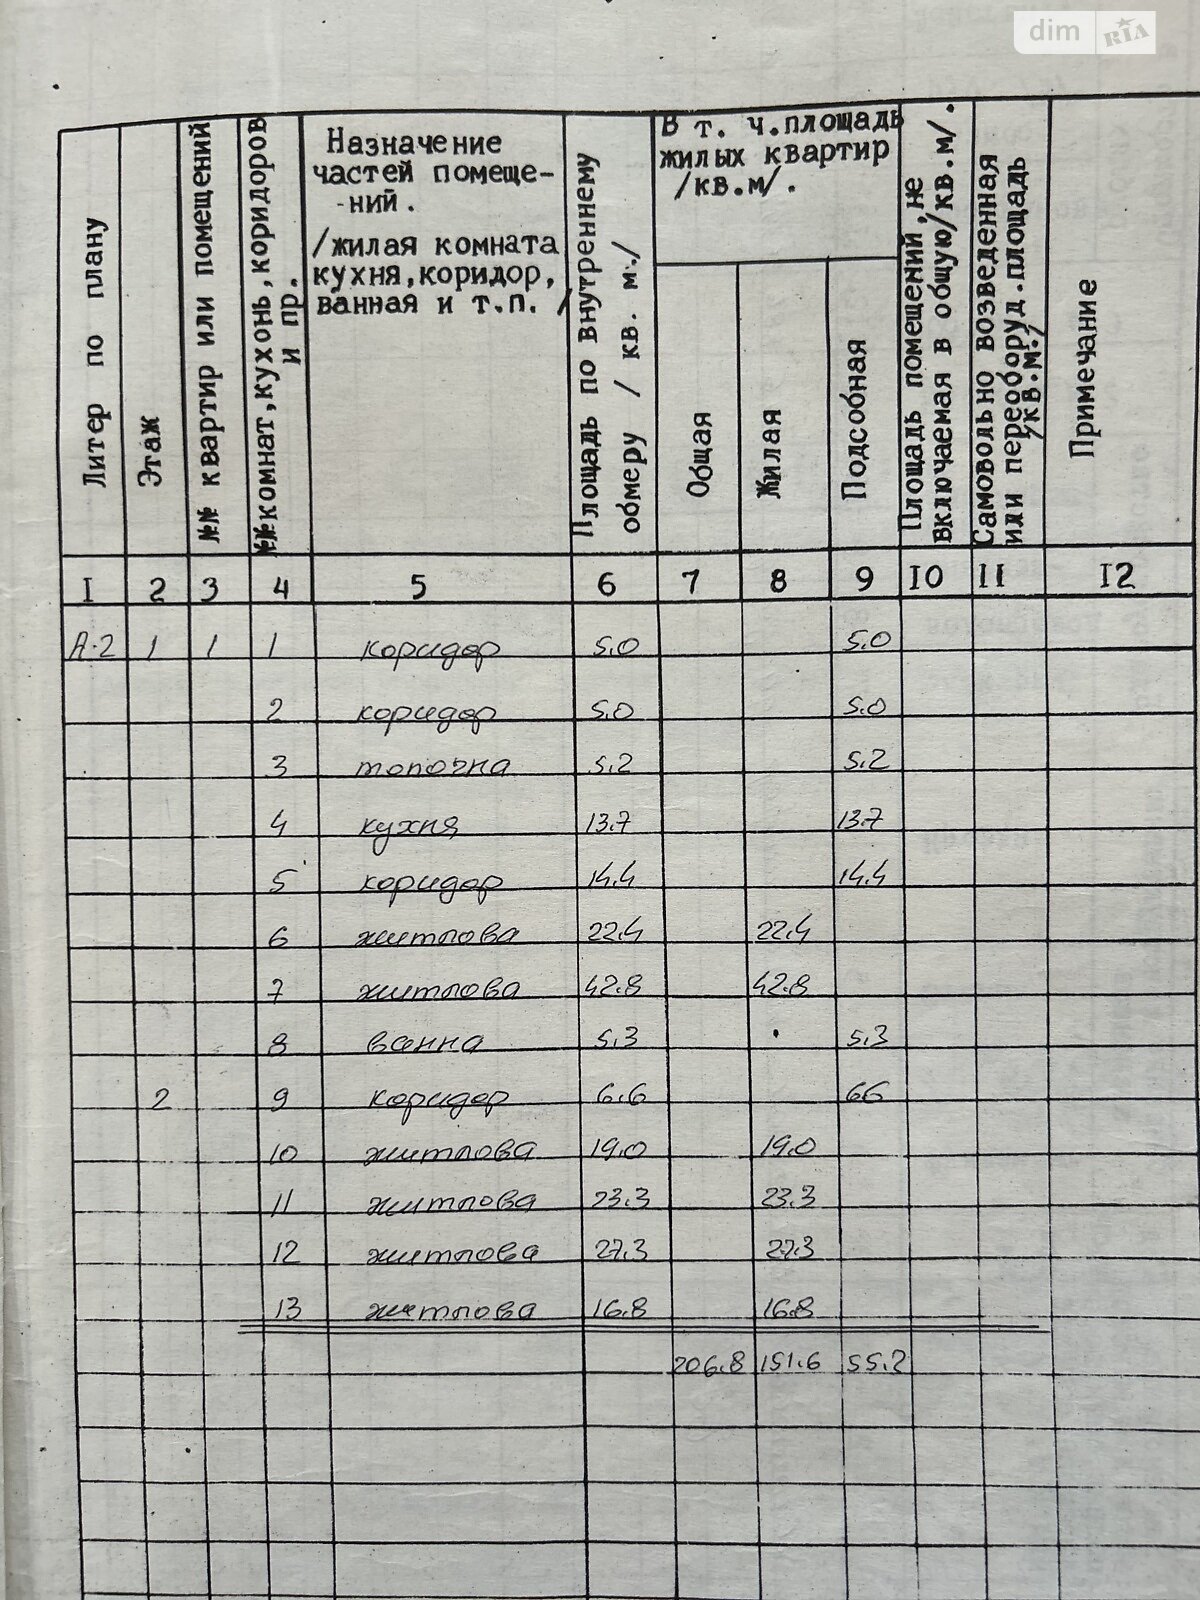 dim RIA
Литер по плану
Этаж
№№ квартир или помещений
№№ комнат, кухонь, коридоров
и пр.
Назначение
частей помеще-
-ний.
/жилая комната
кухня, коридор,
ванная и т.п. /
Площадь по внутреннему
обмеру / кв. м./
В т. ч. площадь
жилых квартир
/кв.м/.
Общая
Жилая
Подсобная
Площадь помещений, не
включаемая в общую/кв.м/.
Самовольно возведенная
или переоборуд. площадь
/кв.м./
Примечание
I 2 3 4 5 6 7 8 9 I0 II I2
А-2 1 1 1 коридор 5.0 5.0
2 коридор 5.0 5.0
3 топочна 5.2 5.2
4 кухня 13.7 13.7
5 коридор 14.4 14.4
6 житлова 22.4 22.4
7 житлова 42.8 42.8
8 ванна 5.3 5.3
2 9 коридор 6.6 66
10 житлова 19.0 19.0
11 житлова 23.3 23.3
12 житлова 27.3 27.3
13 житлова 16.8 16.8
206.8 151.6 55.2